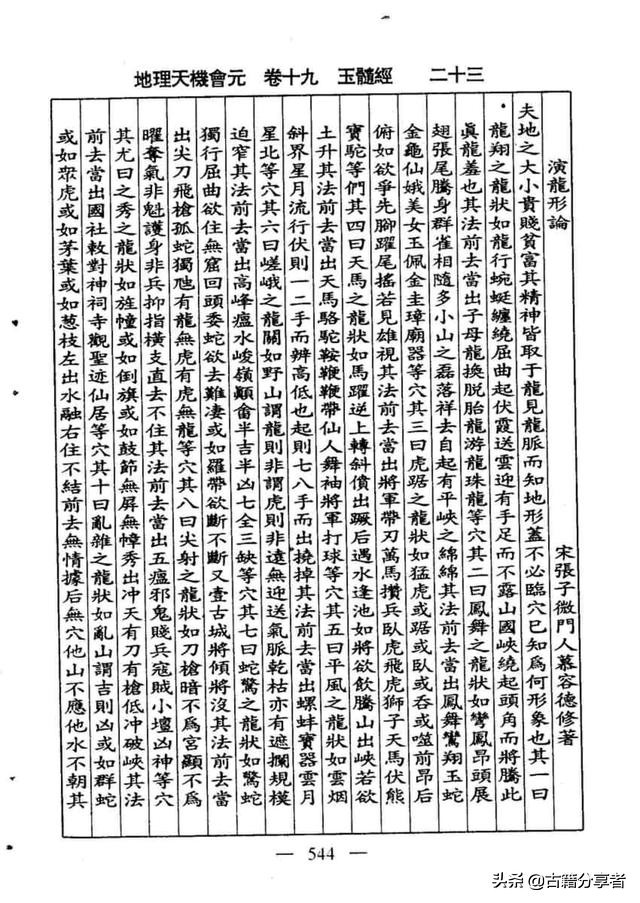 地理天機會元　卷十九　玉髓經　二十三
演龍形論
宋張子微門人慕容德修著
夫地之大小貴賤貧富其精神皆取于龍見龍脈而知地形蓋不必臨穴已知為何形象也其一曰
龍翔之龍狀如龍行蜿蜒纏繞屈曲起伏霞送雲迎有手足而不露山國峽繞起頭角而將騰此
眞龍羞也其法前去當出子母龍換脫胎龍游龍珠龍等穴其二曰鳳舞之龍狀如鸞鳳昂頭展
翅張尾騰身群雀相隨多小山之磊落祥去自起有平峽之綿綿其法前去當出鳳舞鸞翔玉蛇
金龜仙娥美女玉佩金圭璋廟器等穴其三曰虎踞之龍狀如猛虎或踞或臥或吞或噬前昂后
俯如欲爭先腳躍尾搖若見雄視其法前去當出將軍帶刃萬馬攢兵臥虎飛虎獅子天馬伏熊
寶駝等們其四曰天馬之龍狀如馬躍逆上轉斜僨出蹶后遇水逢池如將欲飲騰山出峽若欲
土升其法前去當出天馬駱駝鞍鞭鞭帶仙人舞袖將軍打球等穴其五曰平風之龍狀如雲烟
斜界星月流行伏則一二手而辨高低也起則七八手而出撓掉其法前去當出螺蚌寶器雲月
星北等穴其六曰嵯峨之龍關如野山謂龍則非謂虎則非遠無迎送氣脈乾枯亦有遮攔規模
迫窄其法前去當出高峰瘟水峻嶺顚畬半吉半凶七全三缺等穴其七曰蛇驚之龍狀如驚蛇
獨行屈曲欲住無窟回頭委蛇欲去難凄或如羅帶欲斷不斷又壹古城將傾將沒其法前去當
出尖刀飛槍孤蛇獨虺有龍無虎有虎無龍等穴其八曰尖射之龍狀如刀槍暗不為宮顯不為
曜奪氣非魁護身非兵抑指橫支直去不住其法前去當出五瘟邪鬼賤兵寇賊小壇凶神等穴
其尤曰之秀之龍狀如旌幢或如倒旗或如鼓節無屏無幛秀出冲天有刀有槍低冲破峽其法
前去當出國社敕對神祠寺觀聖迹仙居等穴其十曰亂雜之龍狀如亂山謂吉則凶或如群蛇
或如眾虎或如茅葉或如葱枝左出水融右住不結前去無情據后無穴他山不應他水不朝其
— 544 —
头条 @古籍分享者